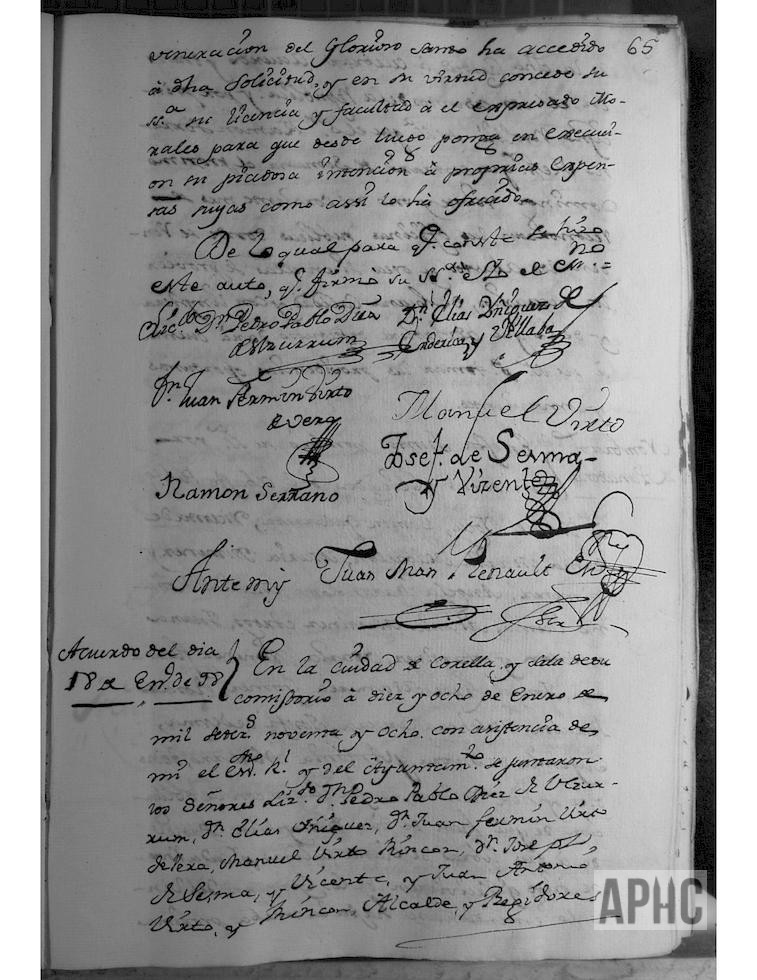 65
veneracion del Glorioso santo ha accedido
à dha solicitud, y en su virtud concede su
ss.ª su licencia, y facultad à el expresado Mo-
rales para que desde luego ponga en execuci-
on su piadosa intencion à proprias expen-
sas suyas como assi lo ha ofrecido.
De lo qual para q.e conste se hizo
este auto, q.e firmó su ss.ª è Yo el ess.no =
Lic.do D.n Pedro Pablo Diez
de Ulzurrun
D.n Elias Yñiguez de
y Villaba
Juan Fermin Virto
de Vera
Manuel Virto
Josef de Sesma
y Vizente
Ramon Serrano
Ante mi Juan Man.l Renault
Acuerdo del dia
18 de En.o de 98
En la ciudad de Corella, y sala de su
consistorio à diez y ocho de Enero de
mil setez.s noventa y ocho con asistencia de
mi el ess.no R.l y del Ayuntam.to se juntaron
los señores Liz.do D.n Pedro Pablo Diez de Ulzur-
run, D.n Elias Yñiguez, D.n Juan Fermin Virto
de Vera, Manuel Virto Rincon, D.n Josef
de Sesma, y Vicente, y Juan Antonio
Virto, y Rincon Alcalde, y Regidores
APHC